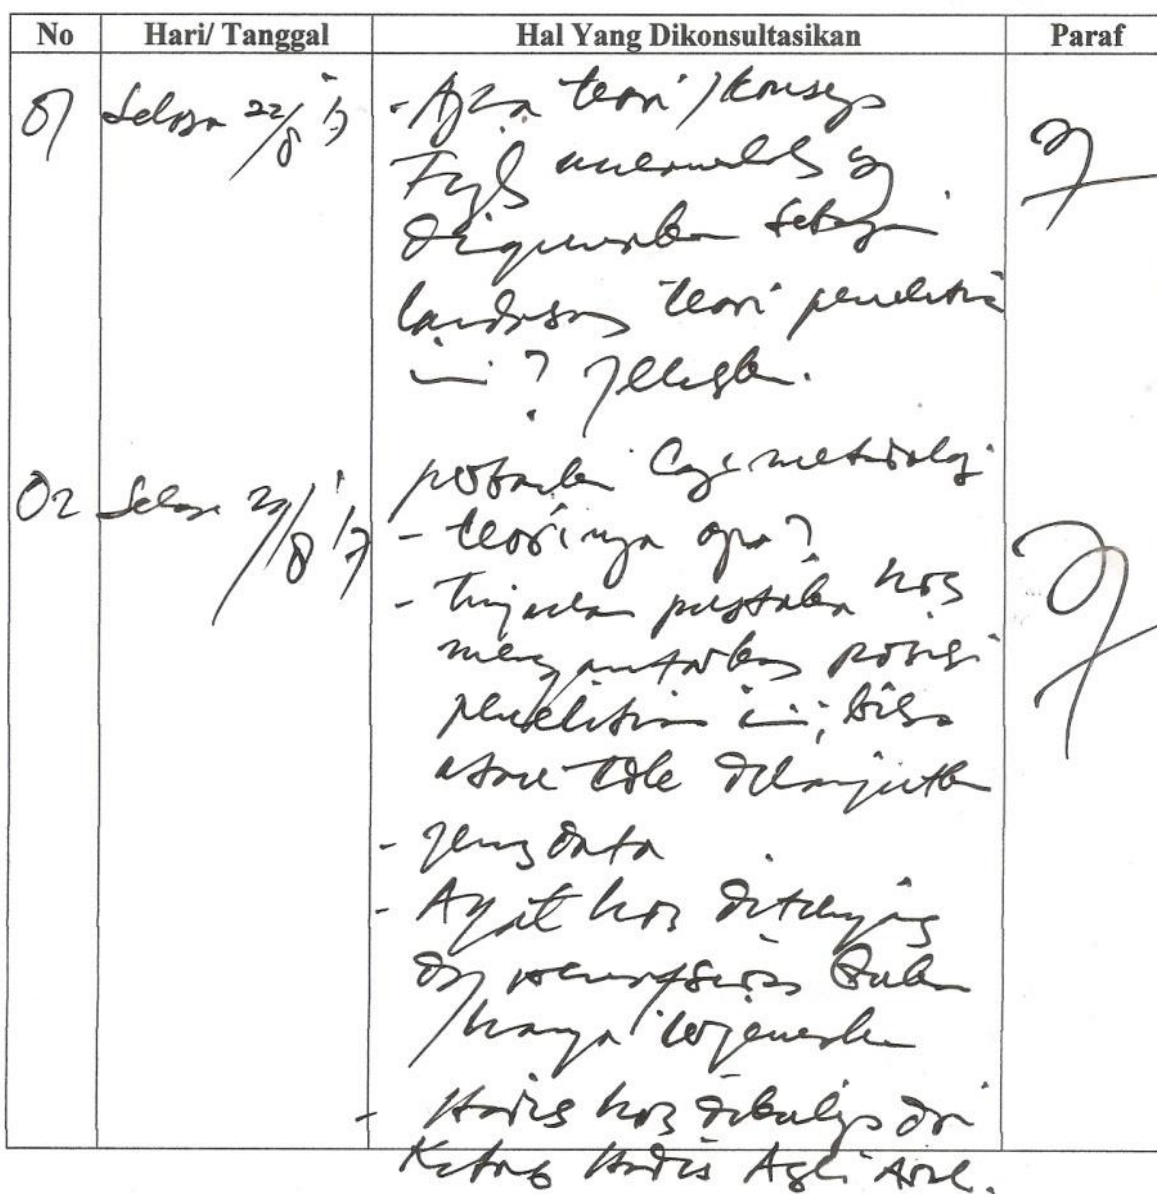 No Hari/ Tanggal Hal Yang Dikonsultasikan Paraf
01 Selasa 22/8 '17 - Apa teori / konsep
Fiqh muamalah yg
Digunakan sebagai
landasan teori penelitian
ini? Jelaskan.
02 Selasa 29/8 '17 perbaiki lagi metodologi
- teorinya apa?
- Tinjauan pustaka hrs
mengantarkan posisi
penelitian ini, bisa
atau tdk dilanjutkan
- Jenis data
- Ayat hrs ditunjang
dg penafsiran bukan
hanya terjemahan
- Hadis hrs dikutip dri
Kitab Hadis Asli Arab.